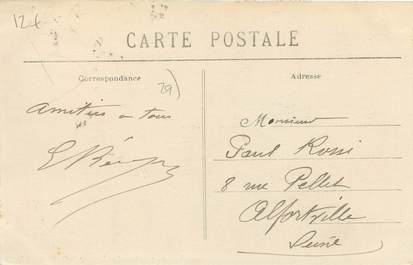 12€
CARTE POSTALE
Correspondance
29)
Amitiés a tous
Adresse
Monsieur
Paul Rossi
8 rue Pellet
Alfortville
Seine